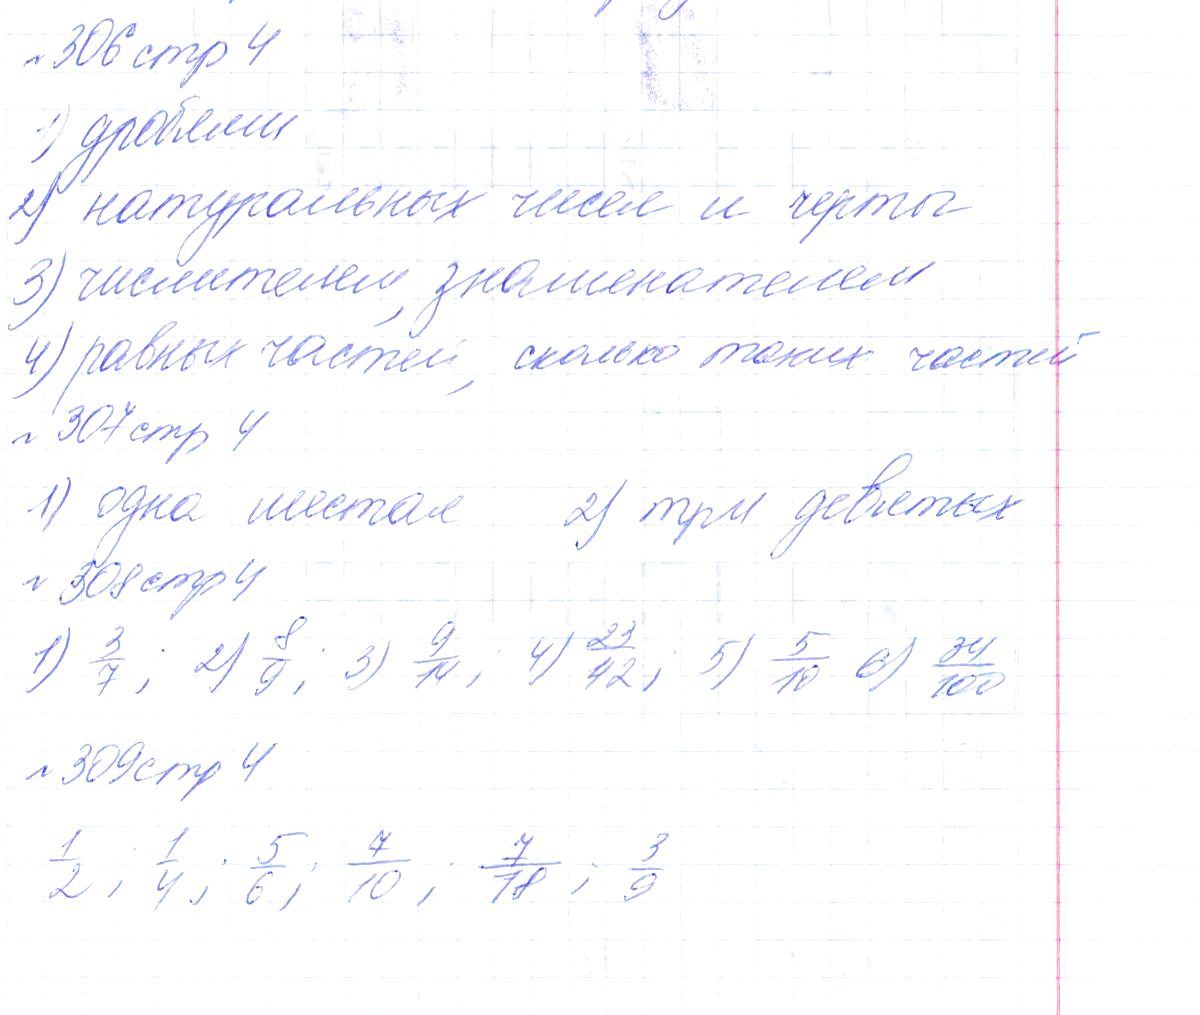 №306 стр 4
1) дробями
2) натуральных чисел и черты
3) числителем, знаменателем
4) равных частей, сколько таких частей
№307 стр 4
1) одна шестая 2) три девятых
№308 стр 4
1) 3/7; 2) 8/9; 3) 9/14; 4) 23/42; 5) 5/10 6) 34/100
№309 стр 4
1/2; 1/4; 5/6; 7/10; 7/18; 3/9